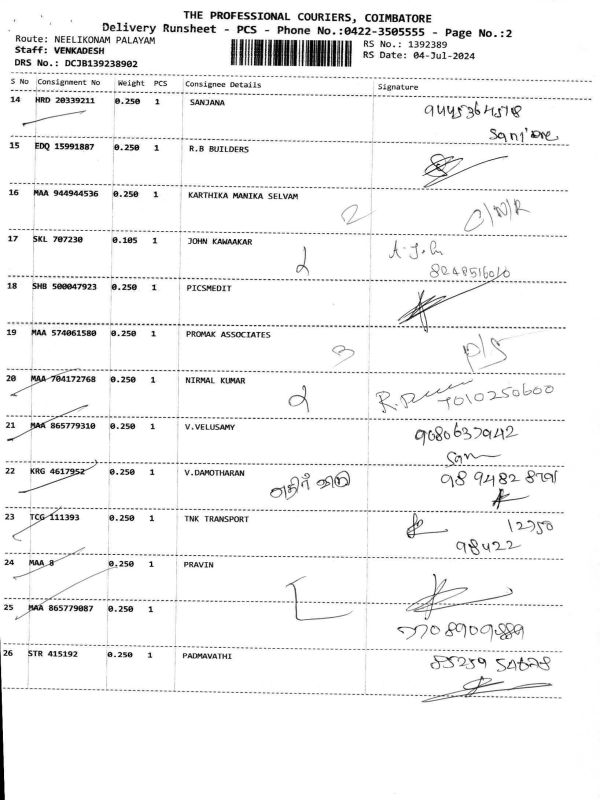 THE PROFESSIONAL COURIERS, COIMBATORE
Delivery Runsheet - PCS - Phone No.:0422-3505555 - Page No.:2
Route: NEELIKONAM PALAYAM
RS No.: 1392389
Staff: VENKADESH
RS Date: 04-Jul-2024
DRS No.: DCJB139238902
S No Consignment No Weight PCS Consignee Details Signature
14 HRD 20339211 0.250 1 SANJANA
15 EDQ 15991887 0.250 1 R.B BUILDERS
16 MAA 944944536 0.250 1 KARTHIKA MANIKA SELVAM
2 C/N/R
17 SKL 707230 0.105 1 JOHN KAWAAKAR
18 SHB 500047923 0.250 1 PICSMEDIT
19 MAA 574061580 0.250 1 PROMAK ASSOCIATES
3 P/S
20 MAA 704172768 0.250 1 NIRMAL KUMAR
7010250600
21 MAA 865779310 0.250 1 V.VELUSAMY
9080637942
22 KRG 4617952 0.250 1 V.DAMOTHARAN
98 9482 8791
23 TCG 111393 0.250 1 TNK TRANSPORT
12750
98422
24 MAA 8 0.250 1 PRAVIN
25 MAA 865779087 0.250 1
26 STR 415192 0.250 1 PADMAVATHI